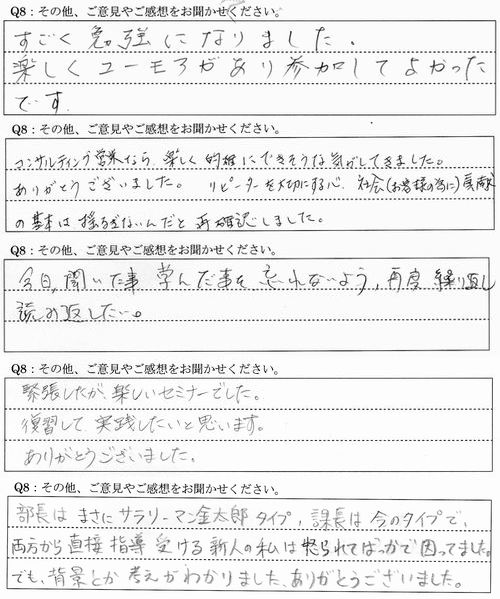 Q8：その他、ご意見やご感想をお聞かせください。
すごく勉強になりました．
楽しくユーモアがあり参加してよかった
です
Q8：その他、ご意見やご感想をお聞かせください。
コンサルティング営業なら、楽しく的確にできそうな気がしてきました。
ありがとうございました。 リピーターを大切にする心、社会(お客様の為に)貢献
の基本は揺るぎないんだと再確認しました。
Q8：その他、ご意見やご感想をお聞かせください。
今日、聞いた事 学んだ事を忘れないよう，再度 繰り返し
読み返したい。
Q8：その他、ご意見やご感想をお聞かせください。
緊張したが、楽しいセミナーでした。
復習して、実践したいと思います。
ありがとうございました。
Q8：その他、ご意見やご感想をお聞かせください。
部長は まさに サラリーマン金太郎 タイプ，課長は 今のタイプで、
両方から 直接 指導 受ける 新人の私は 怒られてばっかで 困ってました。
でも、背景とか 考えがわかりました、ありがとうございました。